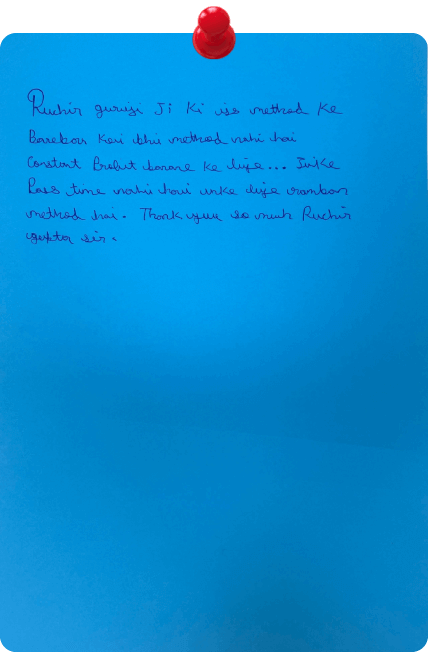 Ruchir guruji Ji Ki iss method Ke
Barabar Koi bhi method nahi hai
Constant Profit banane ke liye... Jinke
Pass time nahi hai unke liye ramban
method hai. Thank you so much Ruchir
gupta sir.